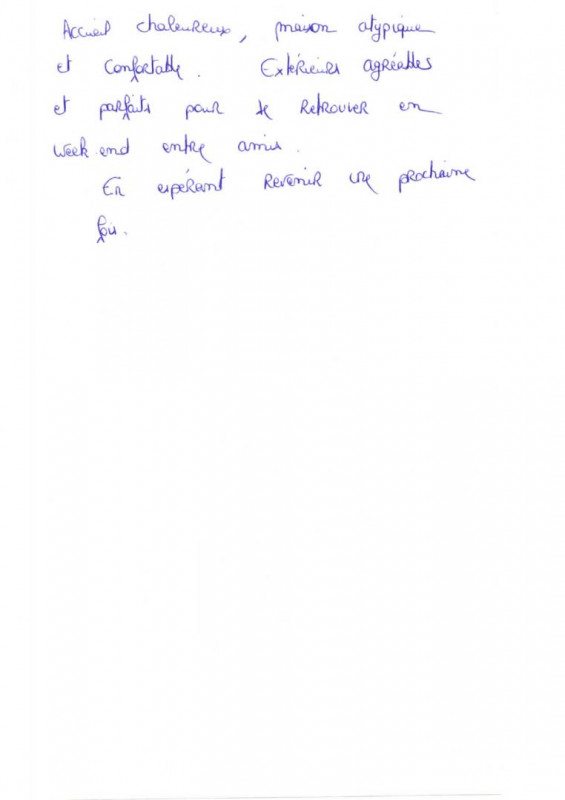 Accueil chaleureux, maison atypique
et confortable. Extérieurs agréables
et parfaits pour se retrouver en
week end entre amis.
En espérant revenir une prochaine
fois.